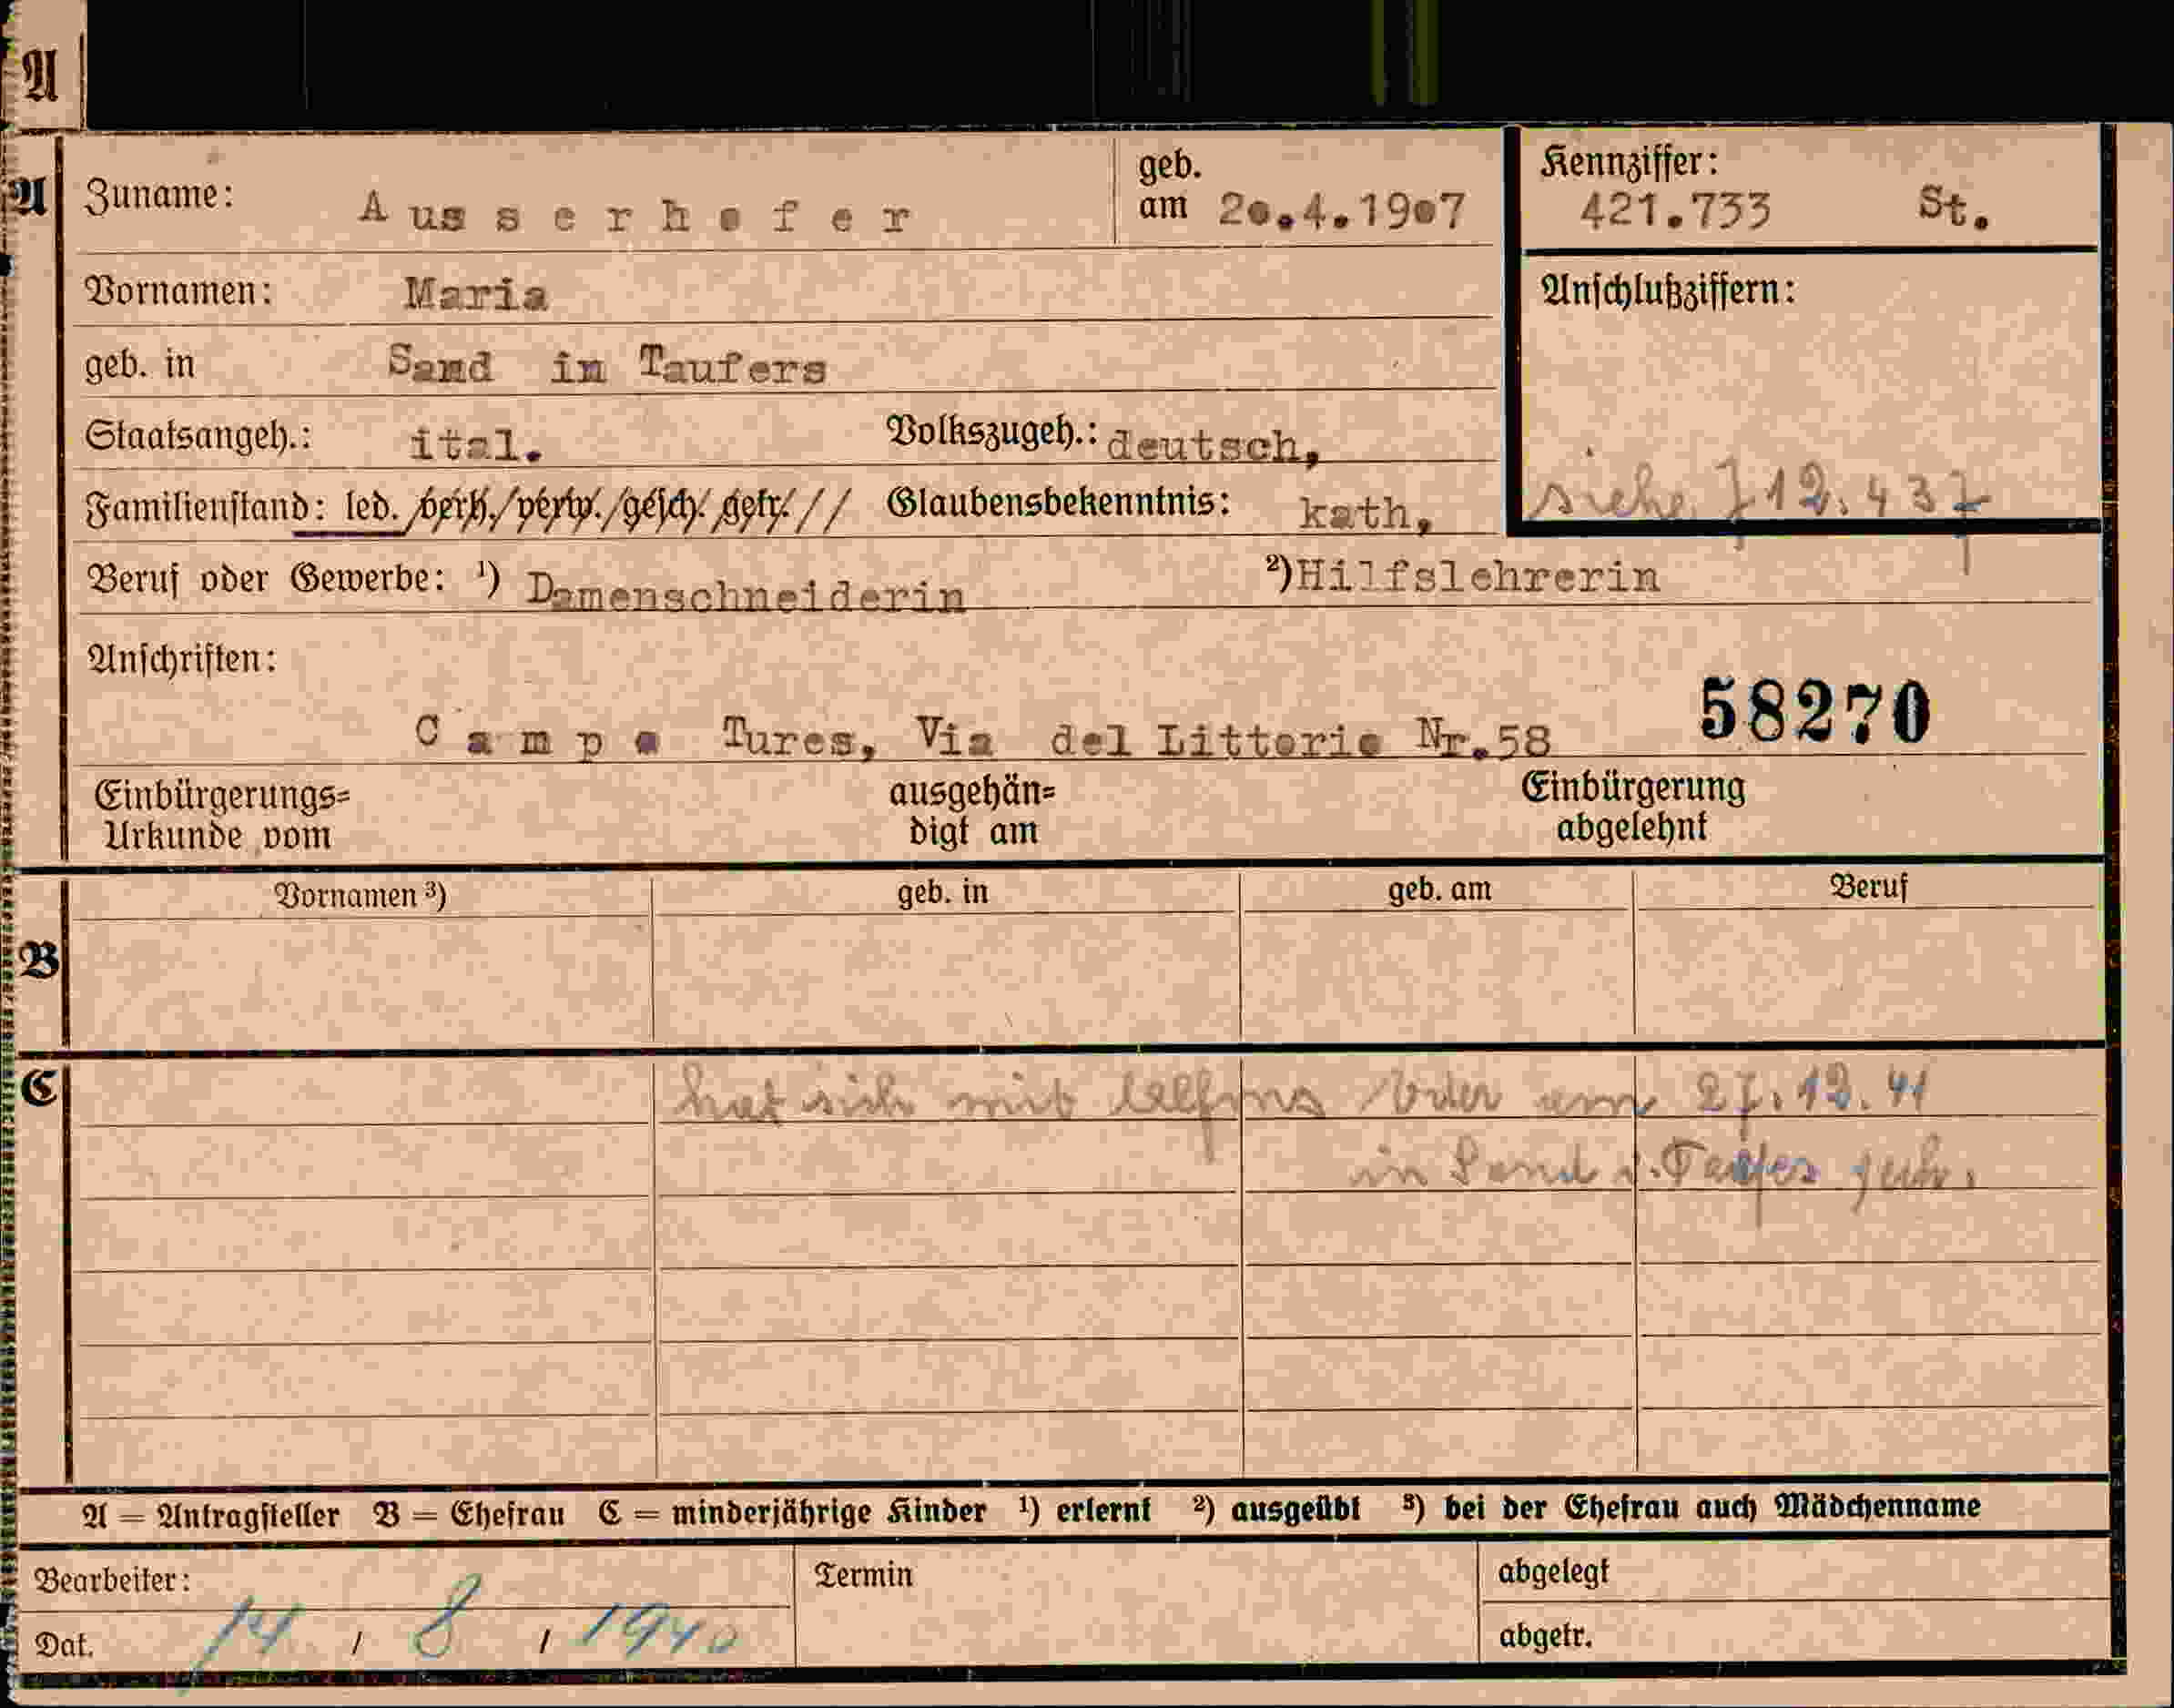 A
A Zuname: Ausserhofer geb. am 20.4.1907 Kennziffer: 421.733 St.
Vornamen: Maria Anschlußziffern:
geb. in Sand in Taufers
Staatsangeh.: ital. Volkszugeh.: deutsch,
Familienstand: led./verh./verw./gesch./getr./// Glaubensbekenntnis: kath, siehe 712.437
Beruf oder Gewerbe: ¹) Damenschneiderin ²) Hilfslehrerin
Anschriften:
58270
Campo Tures, Via del Littorio Nr.58
Einbürgerungs= ausgehän= Einbürgerung
Urkunde vom digt am abgelehnt
Vornamen ³) geb. in geb. am Beruf
B
C hat sich mit am 27.12.41
in Sand i. Taufers
A = Antragsteller B = Ehefrau C = minderjährige Kinder ¹) erlernt ²) ausgeübt ³) bei der Ehefrau auch Mädchenname
Bearbeiter: Termin abgelegt
Dat. 14 / 8 / 1940 abgetr.